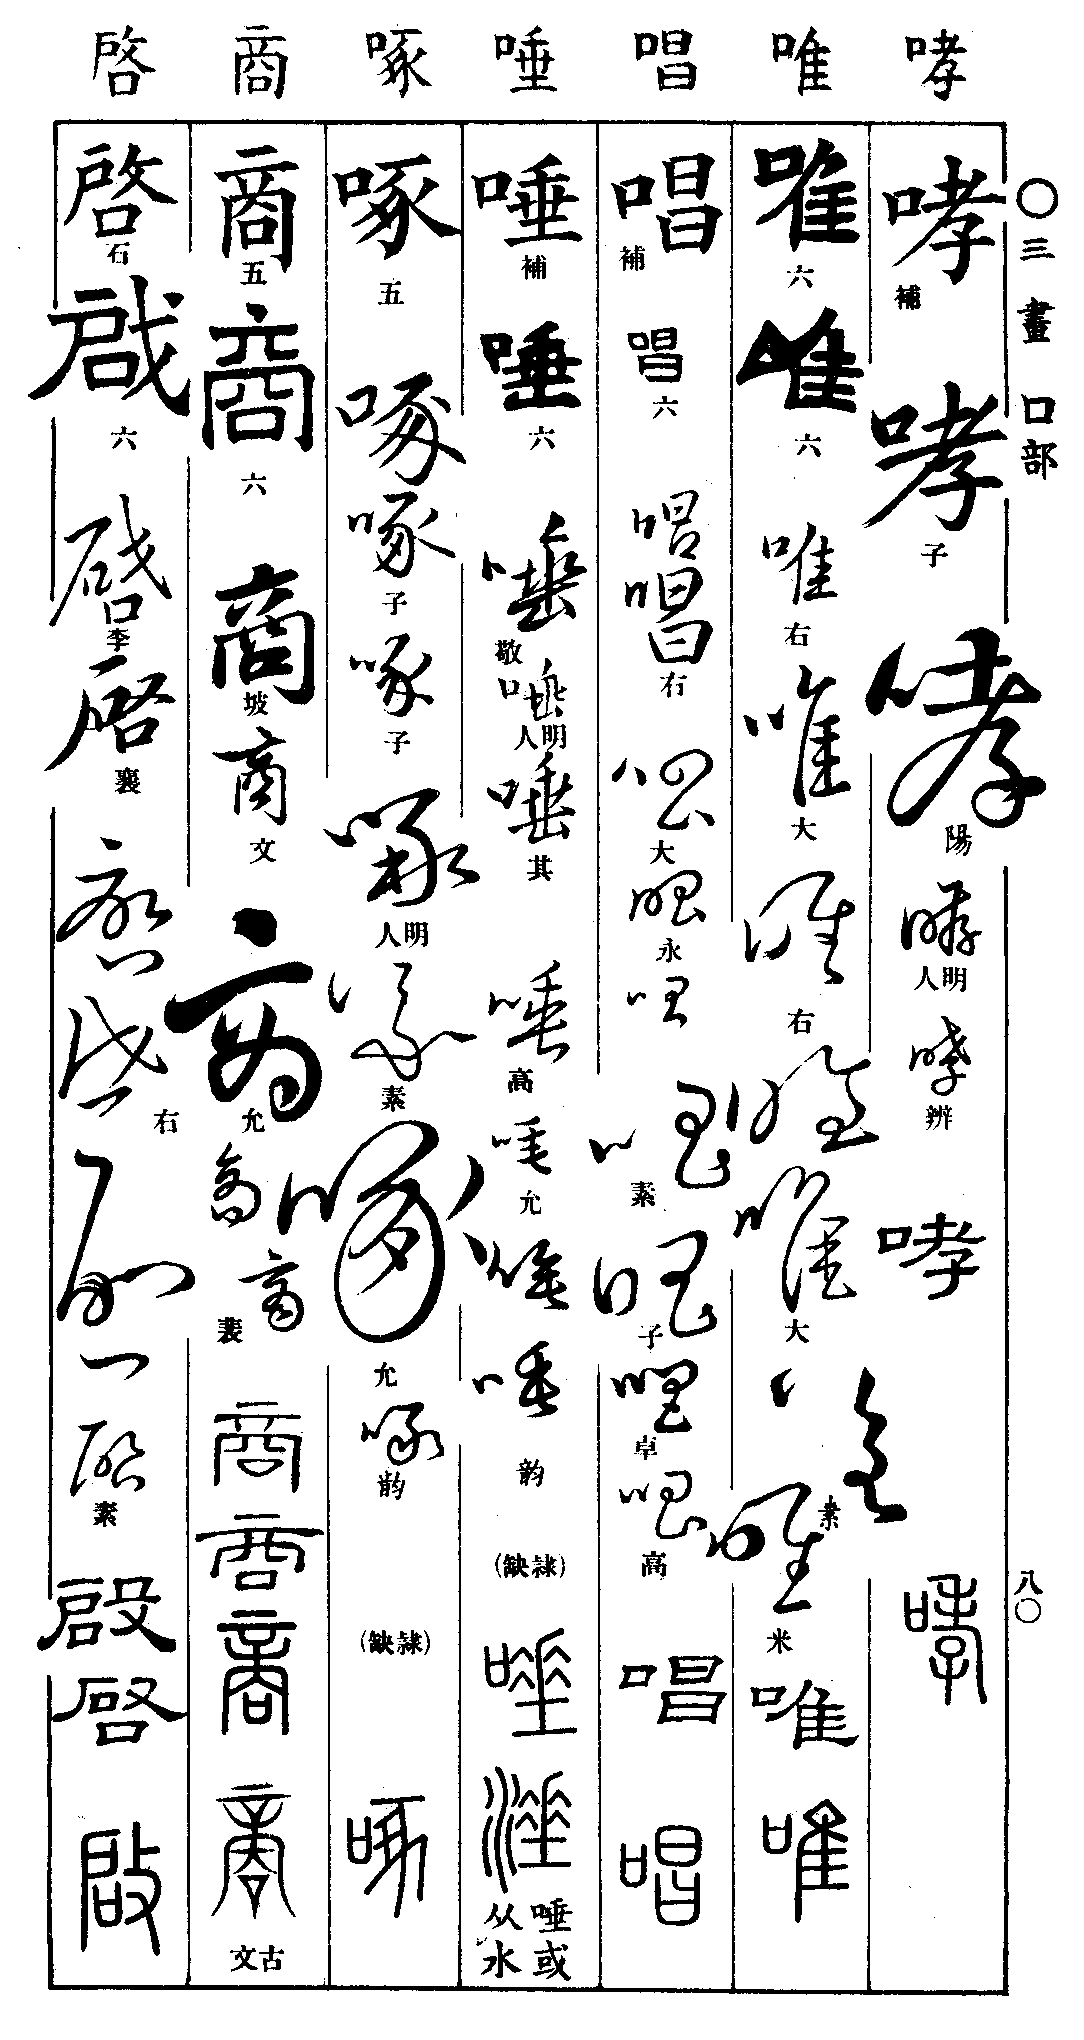 〇三畫 口部
八〇
哮
哮
補
哮
子
哮
陽
哮
明人
哮
辨
哮
哮
唯
唯
六
唯
六
唯
右
唯
大
唯
右
唯
唯
大
唯
素
唯
米
唯
唯
唱
唱
補
唱
六
唱
唱
右
唱
大
唱
永
唱
唱
素
唱
子
唱
卓
唱
高
唱
唱
唾
唾
補
唾
六
唾
敬
唾
明人
唾
其
唾
高
唾
允
唾
唾
韵
(隷缺)
唾
涶
唾或从水
啄
啄
五
啄
啄
子
啄
子
啄
明人
啄
素
啄
允
啄
韵
(隷缺)
啄
商
商
五
商
六
商
坡
商
文
商
允
商
商
裴
商
商
商
商
古文
啓
啓
石
啟
六
啓
李
啓
襄
啓
啓
右
啓
啓
素
啟
啓
啟